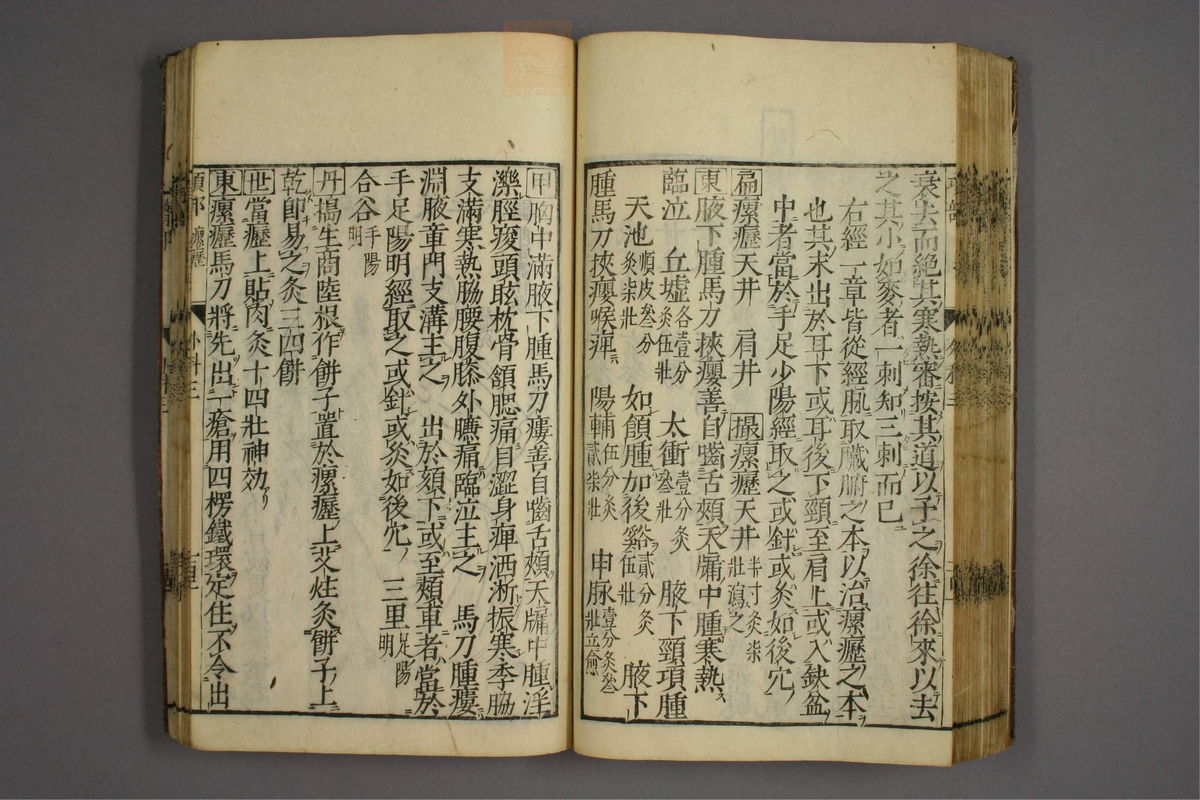 衰去而絶其寒熱審按其道以予之徐往徐來以去
之其小如麥者一刺知三刺而已
右經一章皆從經脉取臟腑之本以治瘰癧之本
也其末出於耳下或耳後下頸至肩上或入缺盆
中者當於手足少陽經取之或針或灸如後穴
扁瘰癧天井 肩井 撮瘰癧天井半寸灸柒壯瀉之
東腋下腫馬刀挾癭善自嚙舌頰天牖中腫寒熱
臨泣 丘墟各壹分灸伍壯 太衝壹分灸叁壯 腋下頸項腫
天池順皮叁分灸柒壯 如饋腫加後谿貳分灸伍壯 腋下
腫馬刀挾癭喉痺 陽輔伍分灸貳柒壯 申脉壹分灸叁壯立愈
甲胸中滿腋下腫馬刀瘻善自嚙舌頰天牖中腫淫
濼脛痠頭眩枕骨頷腮痛目澀身痺洒淅振寒季脇
支滿寒熱脇腰腹膝外臁痛臨泣主之 馬刀腫瘻
淵腋章門支溝主之 出於頦下或至頰車者當於
手足陽明經取之或針或灸如後穴 三里足陽明
合谷手陽明
丹搗生商陸根作餅子置於瘰癧上艾炷灸餅子上
乾即易之灸三四餅
世當癧上貼肉灸十四壯神効
東瘰癧馬刀將先出一瘡用四楞鐵環定住不令出
瘰癧